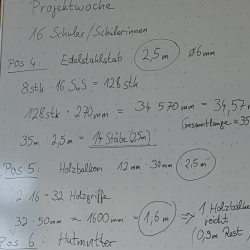 Projektwoche
16 Schüler/Schülerinnen
Pos 4: Edelstahlstab 2,5m ⌀6mm
8stk · 16 SuS = 128stk
128stk · 270mm = 34 570mm = 34,57m
Gesamtlänge ≈ 35
35m : 2,5m = 14 Stäbe (2,5m)
Pos 5: Holzbalken 12mm · 30mm 2,5m
2 · 16 = 32 Holzgriffe
32 · 50mm = 1600mm = 1,6m ⇒ 1 Holzbalken
reicht
0,9m Rest
Pos 6: Hutmutter